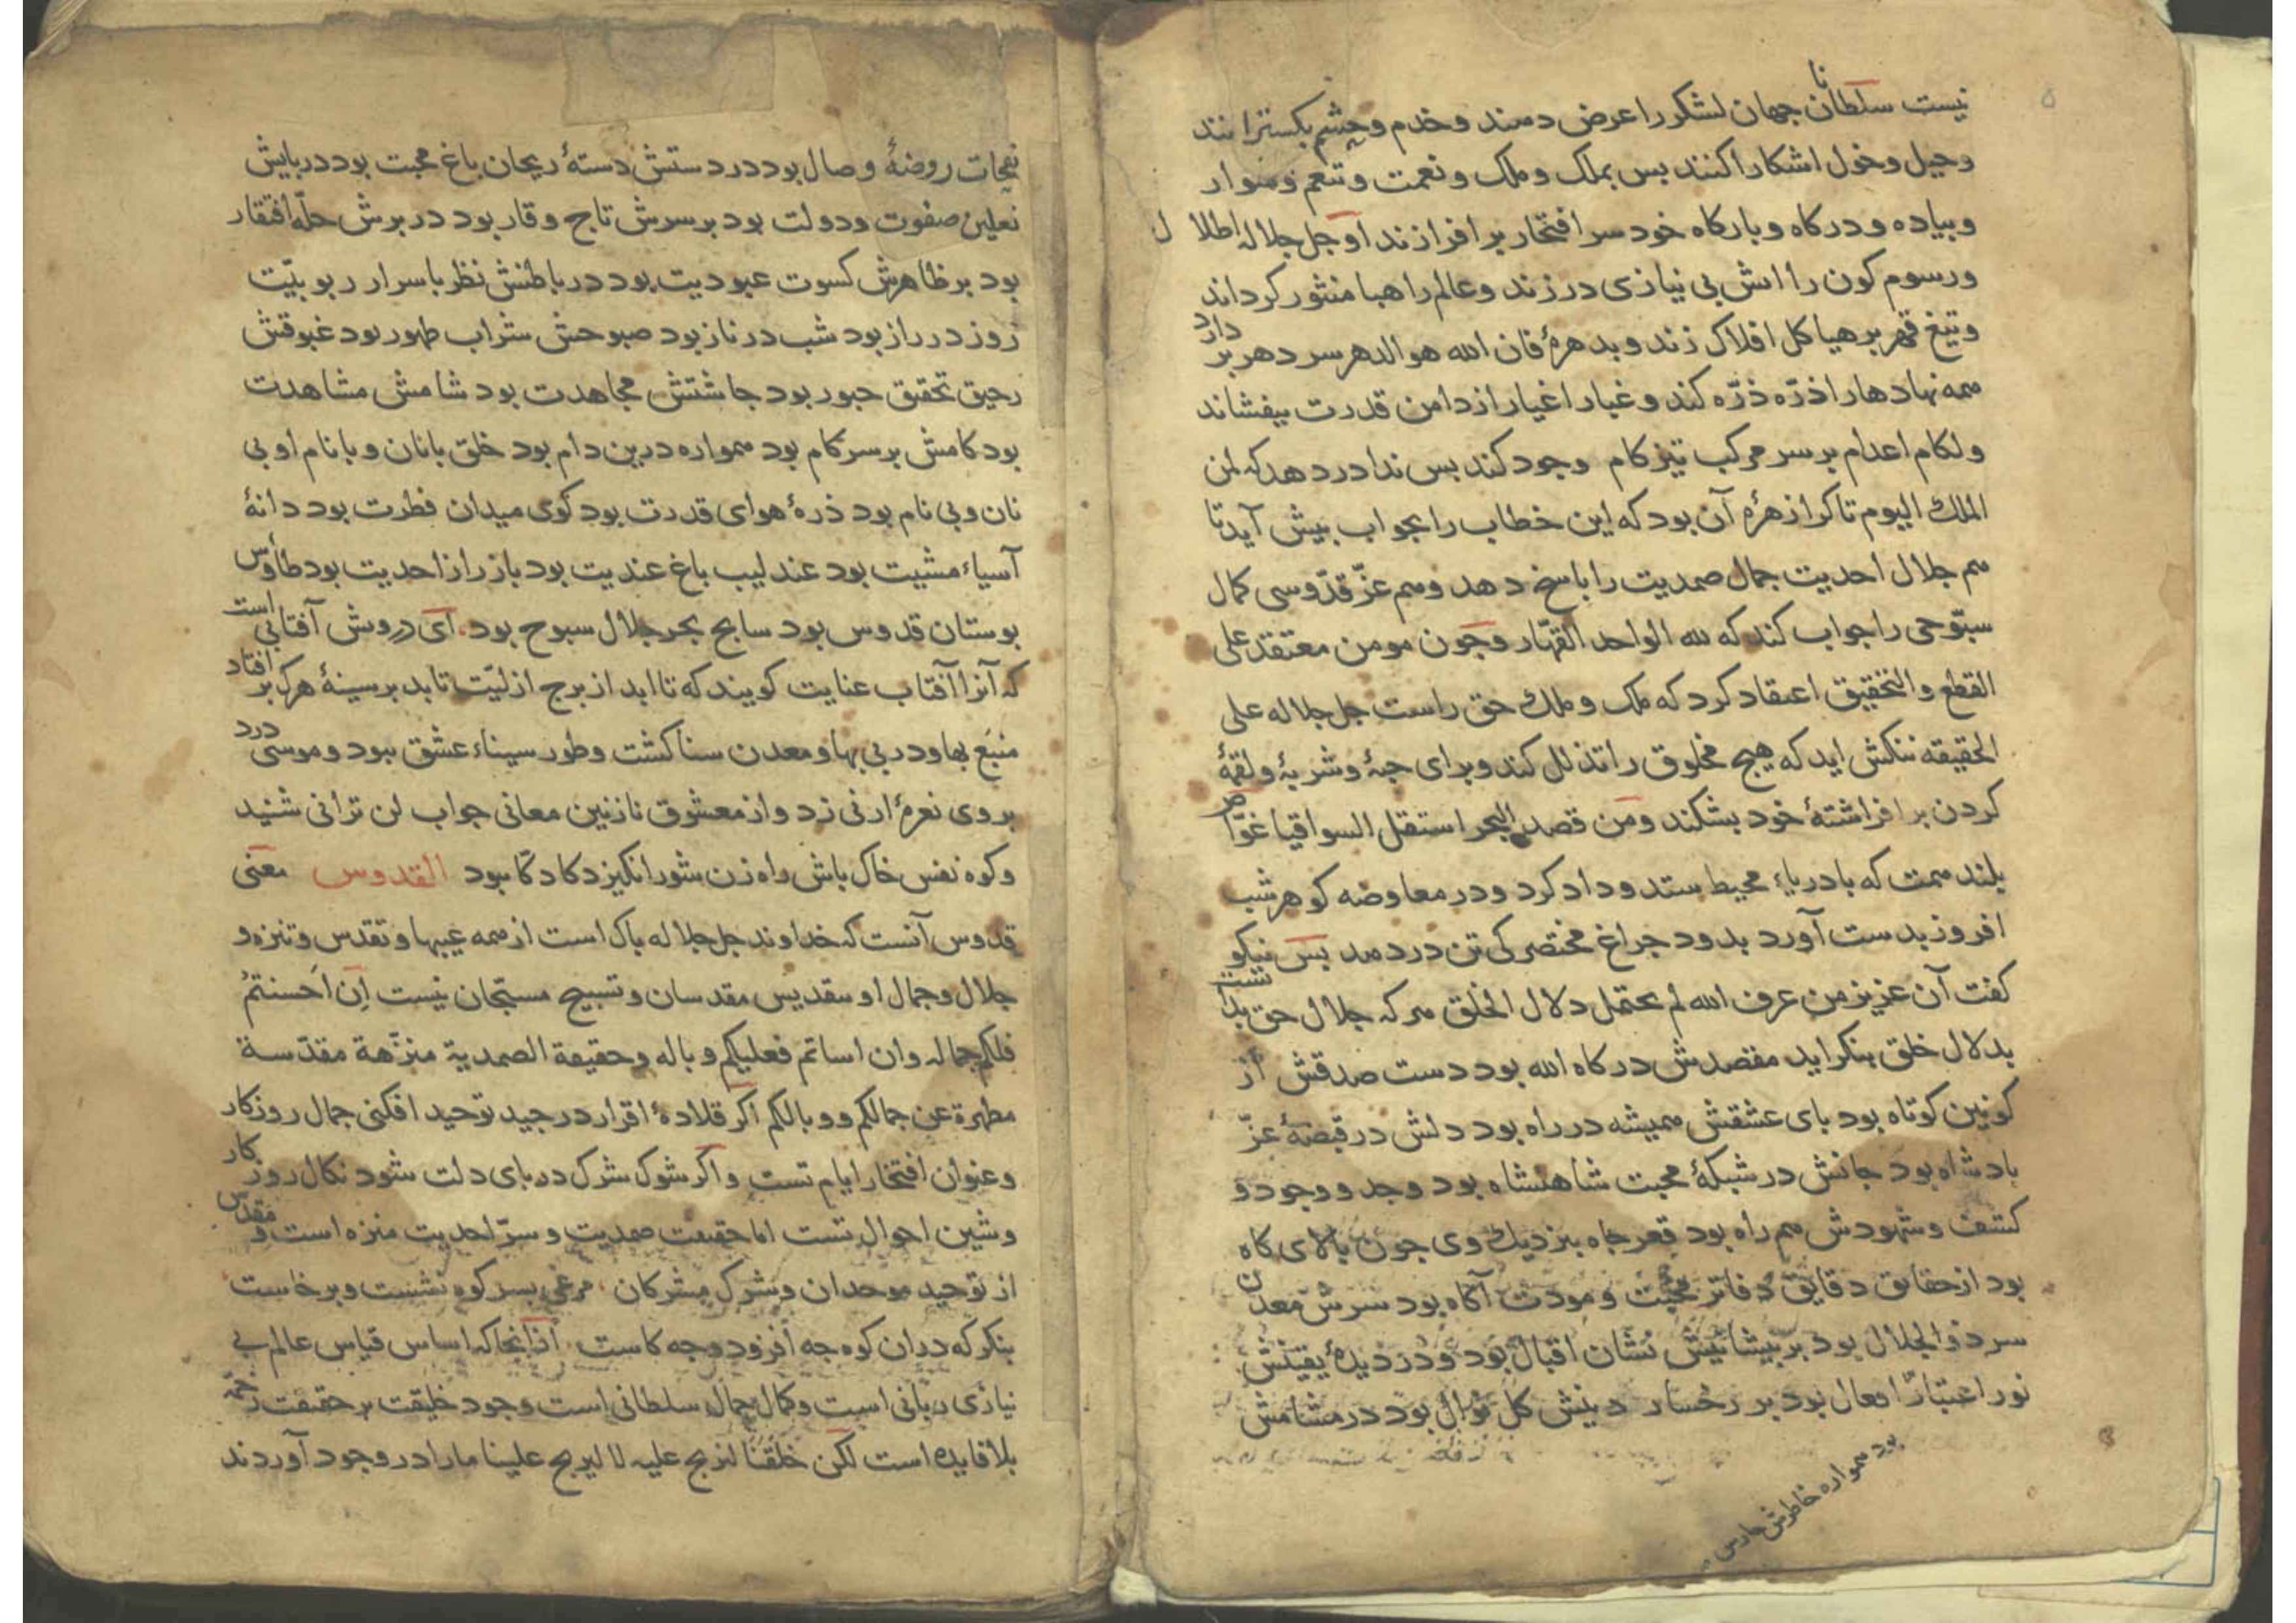 نیست سلطانان جهان لشکر را عرض دهند و خدم و حشم بکسترانند
و خیل و خول اشکارا کنند بس بملک و ملک و نعمت و تنعم و سوار
و بیاده و درکاه و بارکاه خود سر افتخار بر افرازند او جل جلاله اطلال
و رسوم کون را اتش بی نیازی در زند و عالم را هبا منثور کرداند
و تیغ قهر بر هیاکل افلاک زند و بدهرهٔ فان الله هو الدهر سر دهر بردارد
همه نهادها را ذرّه ذرّه کند و غبار اغیار از دامن قدرت بیفشاند
و لکام اعدام بر سر مرکب تیزکام وجود کند بس ندا در دهد که لمن
الملک الیوم تا کرا زهرهٔ آن بود که این خطاب را بجواب بیش آید تا
هم جلال احدیت جمال صمدیت را باسخ دهد و هم عزّ قدّوسی کمال
سبّوحی را جواب کند که لله الواحد القهّار و جون مومن معتقد علی
القطع و التحقیق اعتقاد کرد که ملک و ملک حق راست جل جلاله علی
الحقیقه ننکش اید که هیج مخلوق را تذلل کند و برای جبهٔ و شربهٔ و لقمهٔ
کردن بر افراشتهٔ خود بشکند و من قصد البحر استقل السواقیا غوّاص
بلند همت که با دریاء محیط ستد و داد کرد و در معاوضه کوهر شب
افروز بدست آورد بدود جراغ مختصر کی تن دردهد بس نیکو
کفت آن عزیز من عرف الله لم یحتمل دلال الخلق هر که جلال حق بدانست
بدلال خلق بنکراید مقصدش درکاه الله بود دست صدقش از
کونین کوتاه بود بای عشقش همیشه در راه بود دلش در قبضهٔ عزّ
بادشاه بود جانش در شبکهٔ محبت شاهنشاه بود وجد و وجود و
کشف و شهودش هم راه بود قعر جاه بنزدیک وی جون بالای کاه
بود از حقایق دقایق دفاتر محبّت و مودت آکاه بود سرش معدن
سر ذو الجلال بود بر بیشانیش نشان اقبال بود و در دیدهٔ یقینش
نور اعتبار افعال بود بر رخسار دینش کل نوال بود در مشامش
بود همواره خاطرش حارس
نفحات روضهٔ وصال بود در دستش دستهٔ ریحان باغ محبت بود در بایش
نعلین صفوت و دولت بود بر سرش تاج وقار بود در برش حلّه افتقار
بود بر ظاهرش کسوت عبودیت بود در باطنش نظر باسرار ربوبیّت
روز در راز بود شب در ناز بود صبوحش شراب طهور بود غبوقش
رحیق تحقیق حبور بود جاشتش مجاهدت بود شامش مشاهدت
بود کامش بر سر کام بود همواره درین دام بود خلق با نان و با نام او بی
نان و بی نام بود ذرهٔ هوای قدرت بود کوی میدان فطرت بود دانهٔ
آسیاء مشیت بود عندلیب باغ عندیت بود باز راز احدیت بود طاؤس
بوستان قدوس بود سابح بحر جلال سبوح بود ای درویش آفتابی است
که آنرا آفتاب عنایت کویند که تا ابد از برج ازلیّت تابد بر سینهٔ هر که بر افتاد
منبع بها و در بی بها و معدن سنا کشت و طور سیناء عشق ببود و موسی درد
بر وی نعرهٔ ارنی زد و از معشوق نازنین معانی جواب لن ترانی شنید
و کوه نفس خاک باش راه زن شور انکیز دکا دکا ببود القدوس معنی
قدوس آنست که خداوند جل جلاله باک است از همه عیبها و تقدس و تنزه و
جلال و جمال او بتقدیس مقدسان و تسبیح مسبّحان نیست اِن اَحسنتمُ
فلکم جماله وان اساتم فعلیکم وباله وحقیقة الصمدیة منزّهة مقدّسة
مطهرة عن جمالکم ووبالکم اکر قلادهٔ اقرار در جید توحید افکنی جمال روزکار
و عنوان افتخار ایام تست و اکر شوک شرک در بای دلت شود نکال روزکار
و شین احوال تست اما حقیقت صمدیت و سرّ احدیت منزه است و مقدس
از توحید موحدان و شرک مشرکان مرغی بسر کوه نشست و برخاست
بنکر که دران کوه جه افزود و جه کاست ازانجا که اساس قیاس عالم بی
نیازی ربانی است و کمال جمال سلطانی است وجود خلیقت بر حقیقت زحمة
بلا فایده است لکن خلقنا لنربح علیه لا لیربح علینا ما را در وجود آوردند